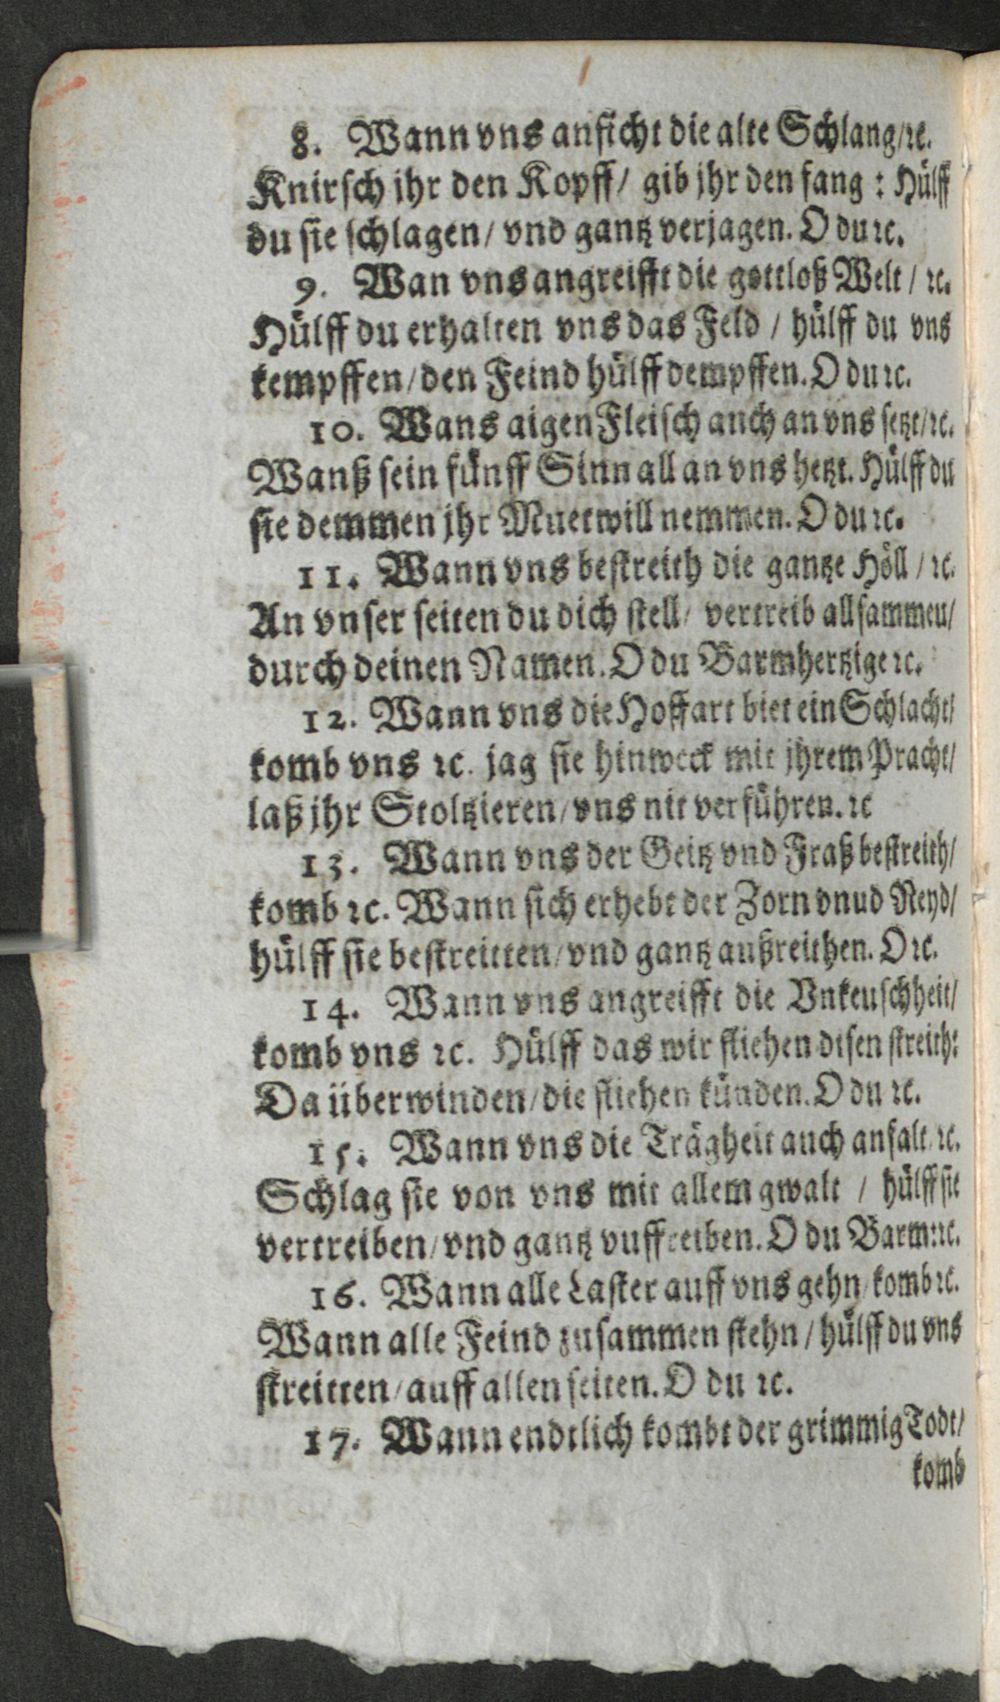 8. Wann vns anficht die alte Schlang/ꝛc.
Knirsch jhr den Kopff/ gib jhr den fang : Hülff
du sie schlagen/ vnd gantz verjagen. O du ꝛc.
9. Wan vns angreifft die gottloß Welt / ꝛc.
Hülff du erhalten vns das Feld / hülff du vns
kempffen/ den Feind hülff dempffen. O du ꝛc.
10. Wans aigen Fleisch auch an vns setzt/ꝛc.
Wanß sein fünff Sinn all an vns hetzt. Hülff du
sie demmen jhr Muetwill nemmen. O du ꝛc.
11. Wann vns bestreith die gantze Höll / ꝛc.
An vnser seiten du dich stell/ vertreib allsammeu/
durch deinen Namen. O du Barmhertzige ꝛc.
12. Wann vns die Hoffart biet ein Schlacht/
komb vns ꝛc. jag sie hinweck mit jhrem Pracht/
laß jhr Stoltzieren/ vns nit verführen. ꝛc
13. Wann vns der Geitz vnd Fraß bestreith/
komb ꝛc. Wann sich erhebt der Zorn vnud Neyd/
hülff sie bestreitten/ vnd gantz außreithen. O ꝛc.
14. Wann vns angreifft die Vnkeuschheit/
komb vns ꝛc. Hülff das wir fliehen disen streith:
Da überwinden/ die fliehen künden. O du ꝛc.
15. Wann vns die Trägheit auch anfalt ꝛc.
Schlag sie von vns mit allem gwalt / hülff sie
vertreiben/ vnd gantz vuffreiben. O du Barm:ꝛc.
16. Wann alle Laster auff vns gehn/ komb ꝛc.
Wann alle Feind zusammen stehn / hülff du vns
streitten/ auff allen seiten. O du ꝛc.
17. Wann endtlich kombt der grimmig Todt/
komb